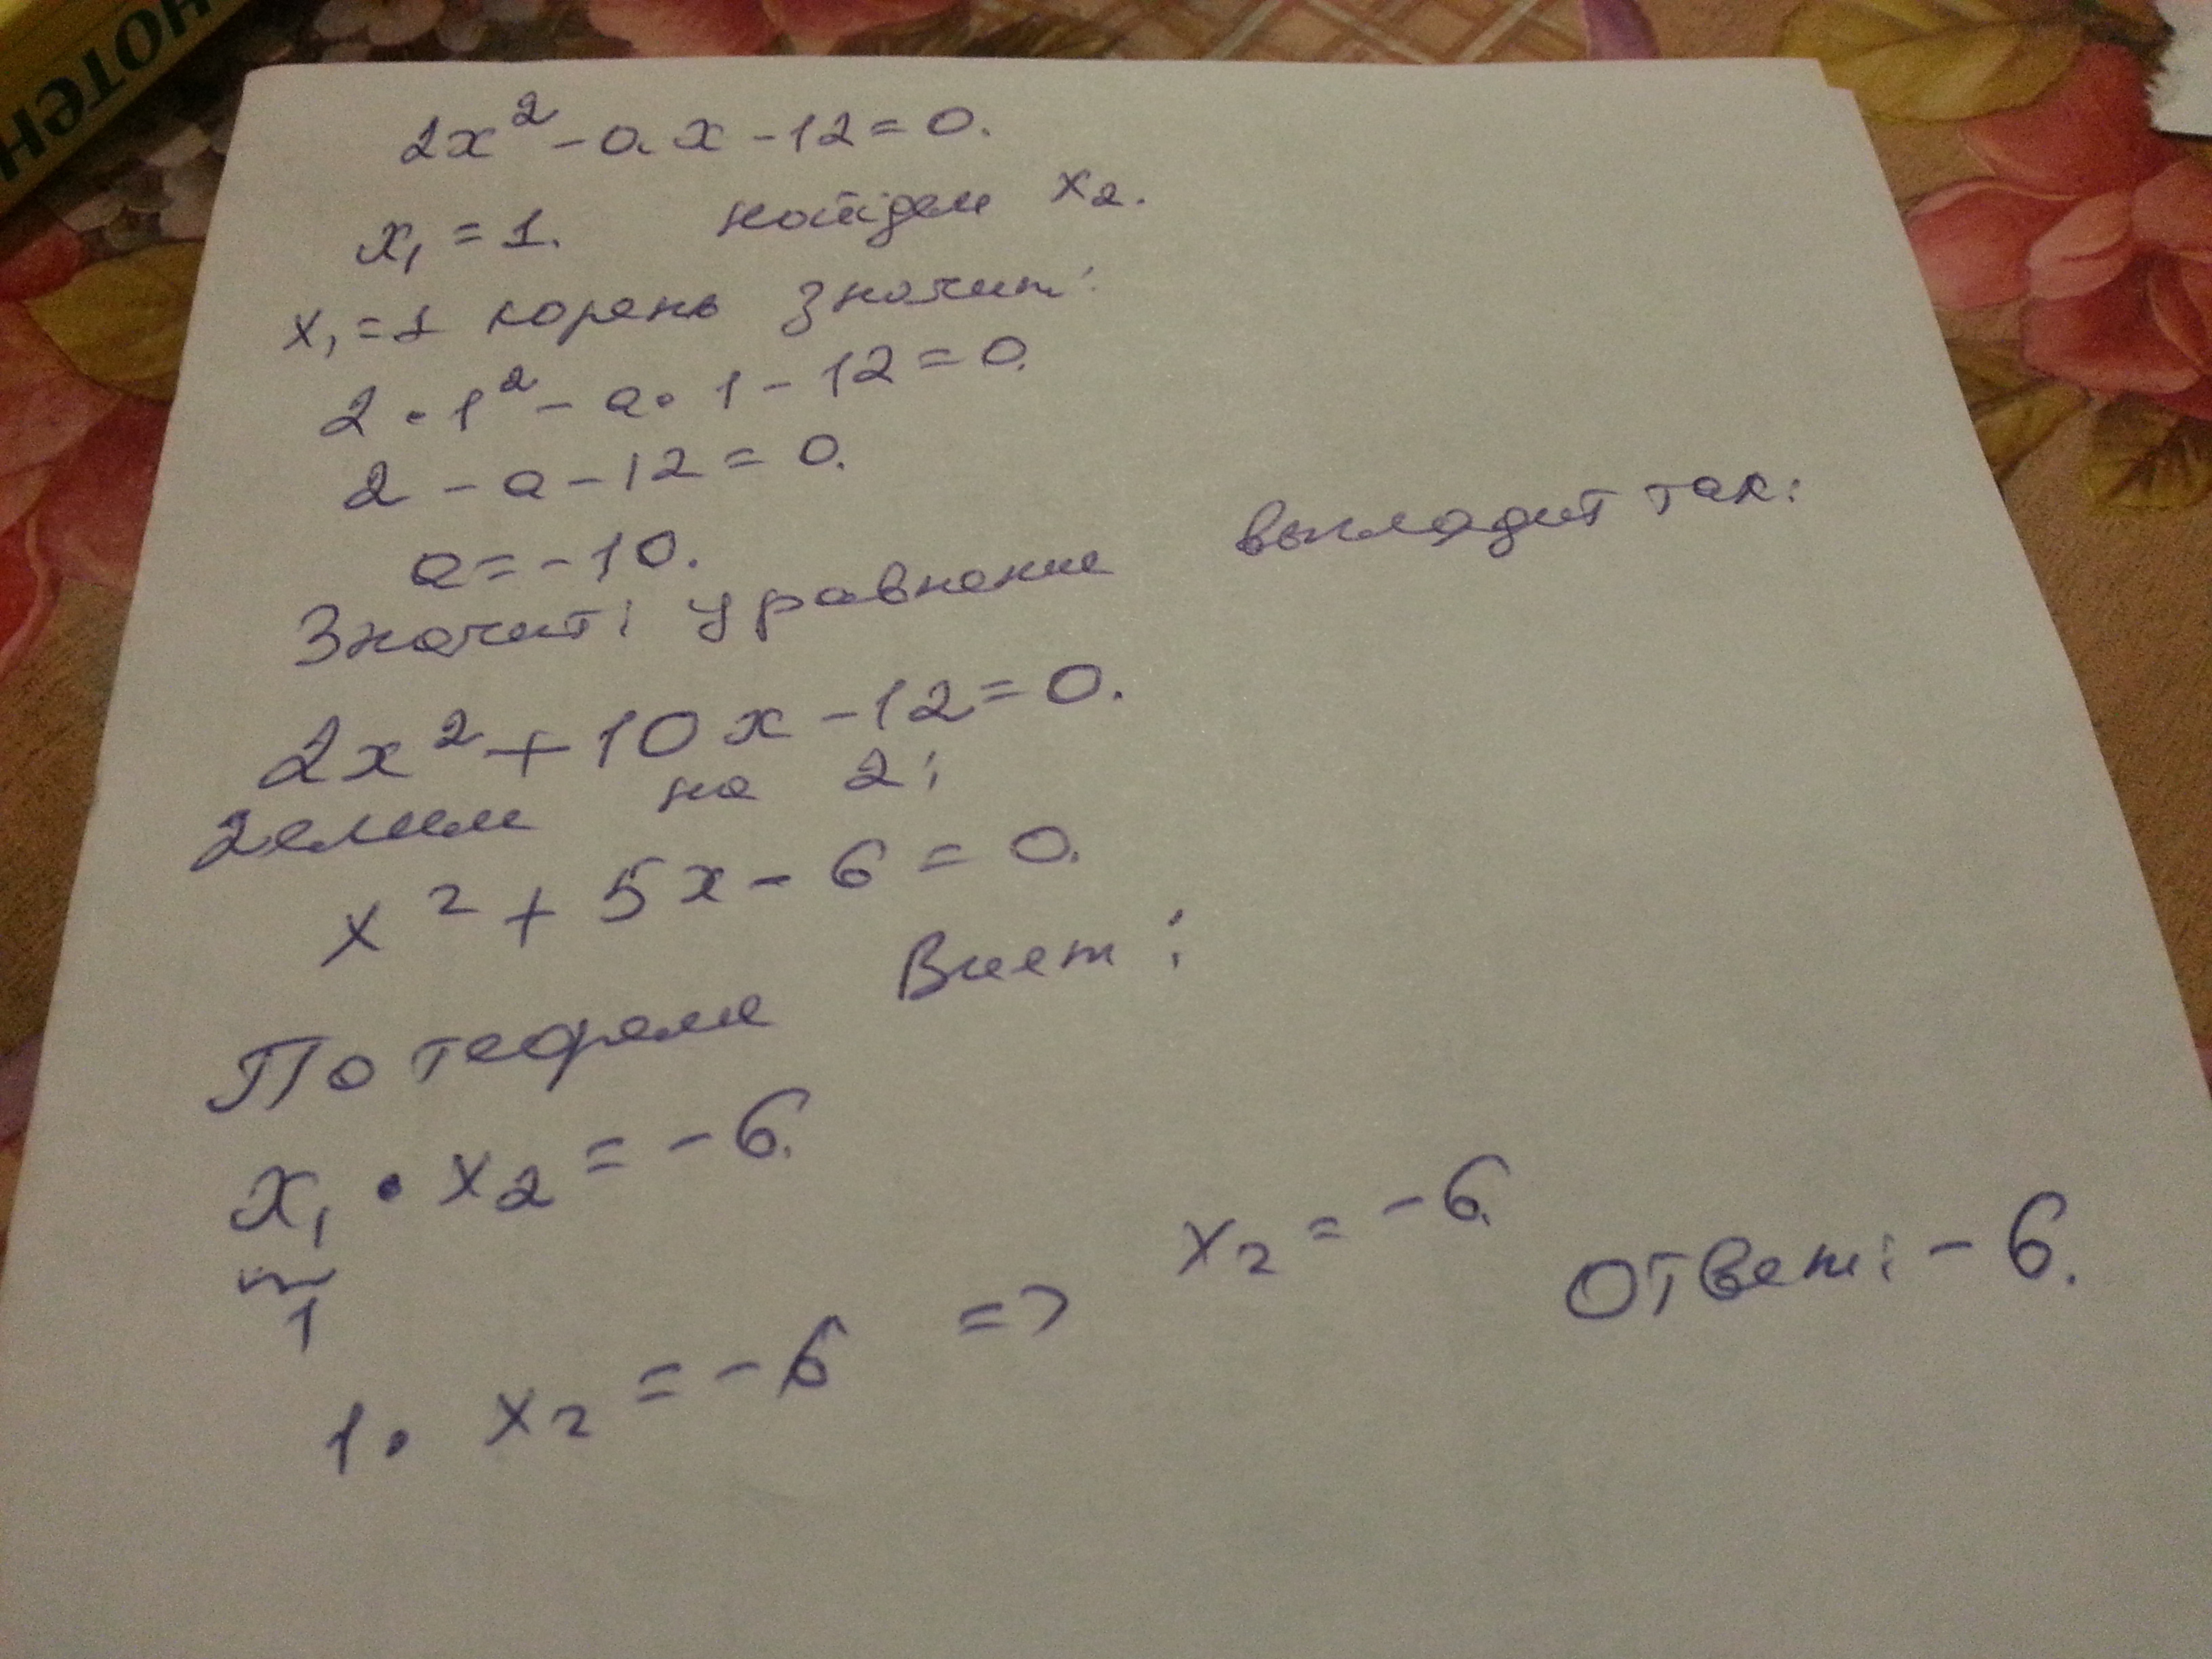 2x² - ax - 12 = 0.
x₁ = 1. найдем x₂.
x₁ = 1 корень значит:
2 · 1² - a · 1 - 12 = 0.
2 - a - 12 = 0.
a = -10.
Значит: уравнение выглядит так:
2x² + 10x - 12 = 0.
делим на 2:
x² + 5x - 6 = 0.
По теореме Виет:
x₁ · x₂ = -6.
1
1 · x₂ = -6 => x₂ = -6. Ответ: -6.